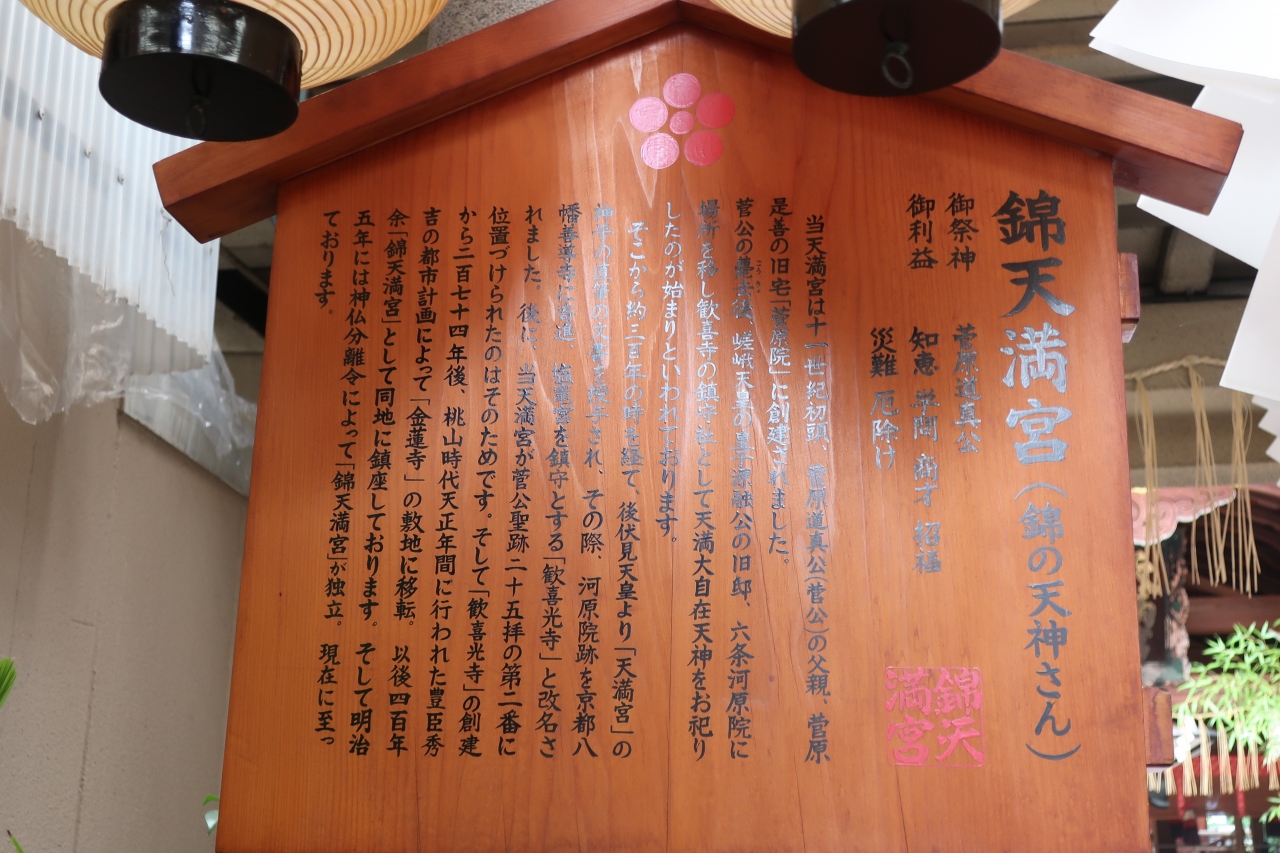 錦天満宮（錦の天神さん）
御祭神　菅原道真公
御利益　知恵 学問 商才 招福
災難 厄除け
錦天
満宮
当天満宮は十一世紀初頭、菅原道真公（菅公）の父親、菅原
是善の旧宅「菅原院」に創建されました。
菅公の薨去後、嵯峨天皇の皇子源融公の旧邸、六条河原院に
場所を移し歓喜寺の鎮守社として天満大自在天神をお祀り
したのが始まりといわれております。
そこから約三百年の時を経て、後伏見天皇より「天満宮」の
神号の真筆の文額を授与され、その際、河原院跡を京都八
幡善導寺に寄進、塩竈宮を鎮守とする「歓喜光寺」と改名さ
れました。後に、当天満宮が菅公聖跡二十五拝の第二番に
位置づけられたのはそのためです。そして「歓喜光寺」の創建
から二百七十四年後、桃山時代天正年間に行われた豊臣秀
吉の都市計画によって「金蓮寺」の敷地に移転。以後四百年
余「錦天満宮」として同地に鎮座しております。そして明治
五年には神仏分離令によって「錦天満宮」が独立。現在に至っ
ております。